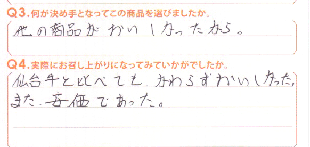 Q3.何が決め手となってこの商品を選びましたか。
他の商品がおいしなったから。
Q4.実際にお召し上がりになってみていかがでしたか。
仙台牛と比べても、かわらずおいしかった。
また、安価であった。